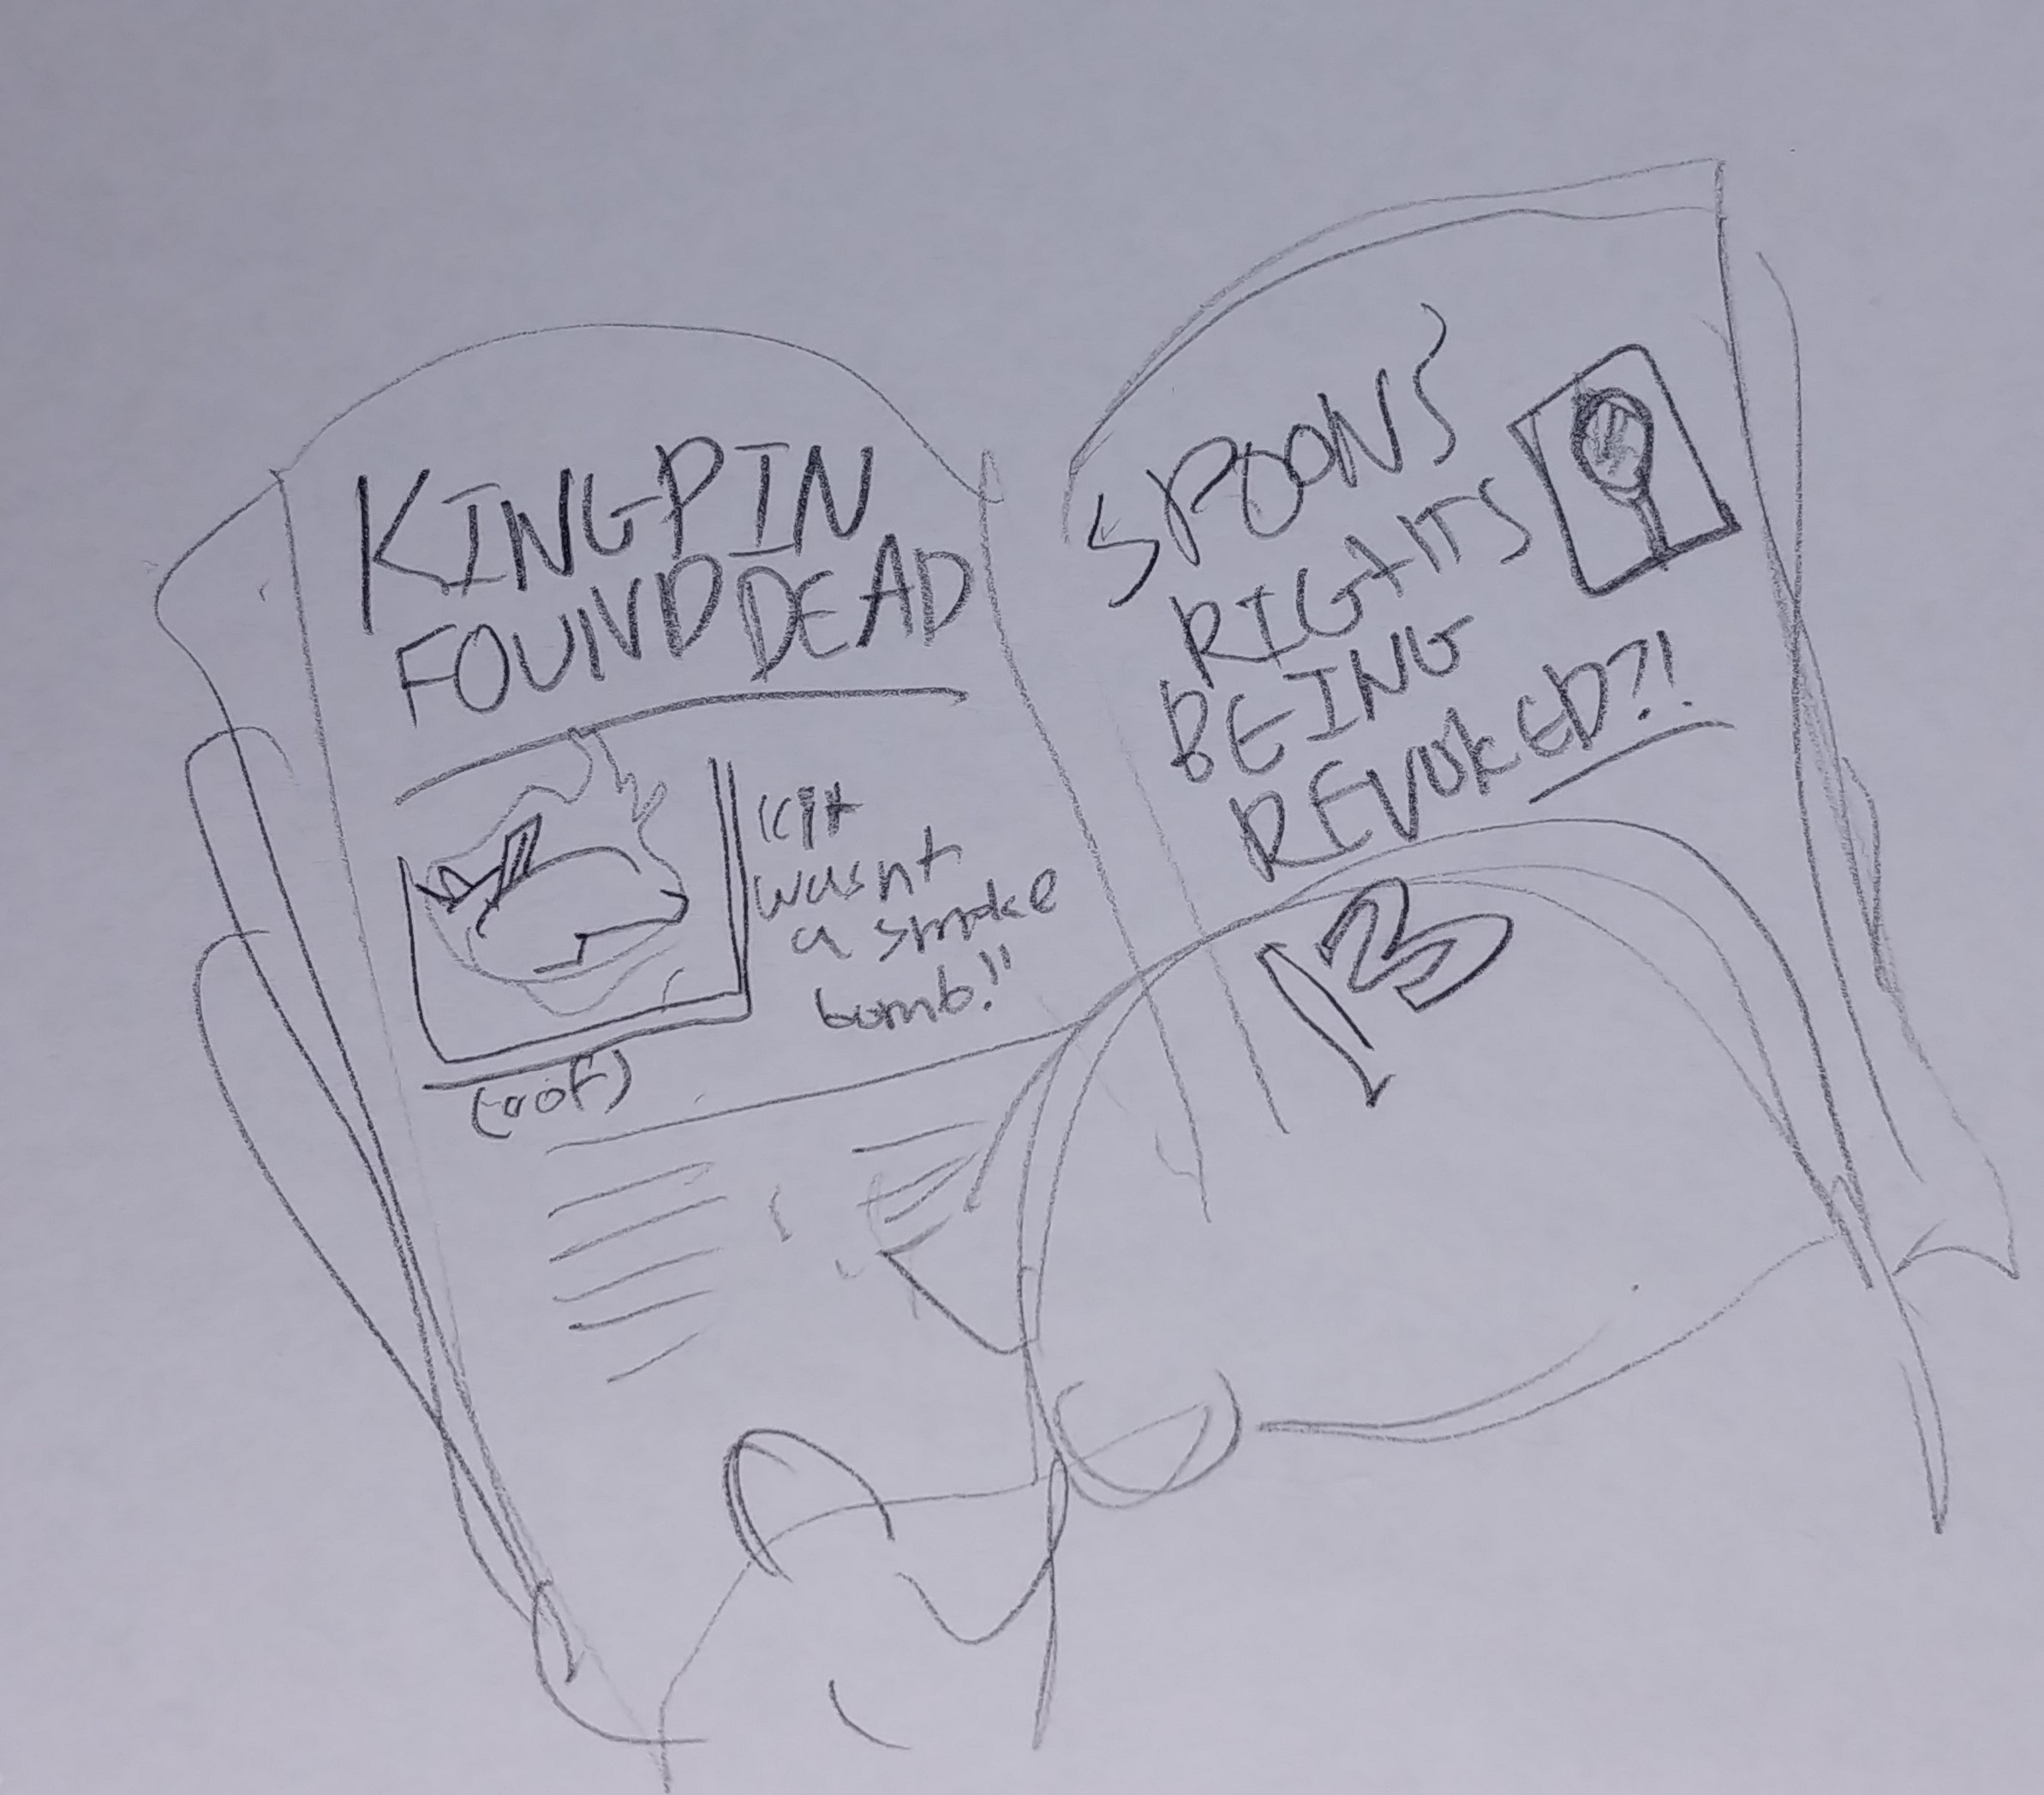 KINGPIN
FOUND DEAD
"it
wasnt
a smoke
bomb!"
(oof)
SPOONS
RIGHTS
BEING
REVOKED?!
13